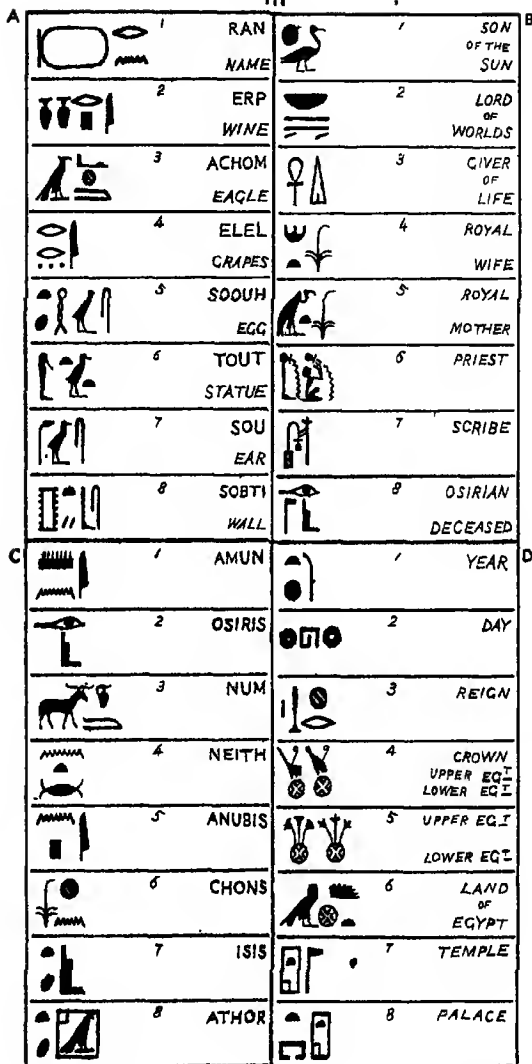 A
1 RAN
NAME
2 ERP
WINE
3 ACHOM
EAGLE
4 ELEL
GRAPES
5 SOOUH
EGG
6 TOUT
STATUE
7 SOU
EAR
8 SOBTI
WALL
B
1 SON
OF THE
SUN
2 LORD
OF
WORLDS
3 GIVER
OF
LIFE
4 ROYAL
WIFE
5 ROYAL
MOTHER
6 PRIEST
7 SCRIBE
8 OSIRIAN
DECEASED
C
1 AMUN
2 OSIRIS
3 NUM
4 NEITH
5 ANUBIS
6 CHONS
7 ISIS
8 ATHOR
D
1 YEAR
2 DAY
3 REIGN
4 CROWN
UPPER EGT
LOWER EGT
5 UPPER EGT
LOWER EGT
6 LAND
OF
EGYPT
7 TEMPLE
8 PALACE